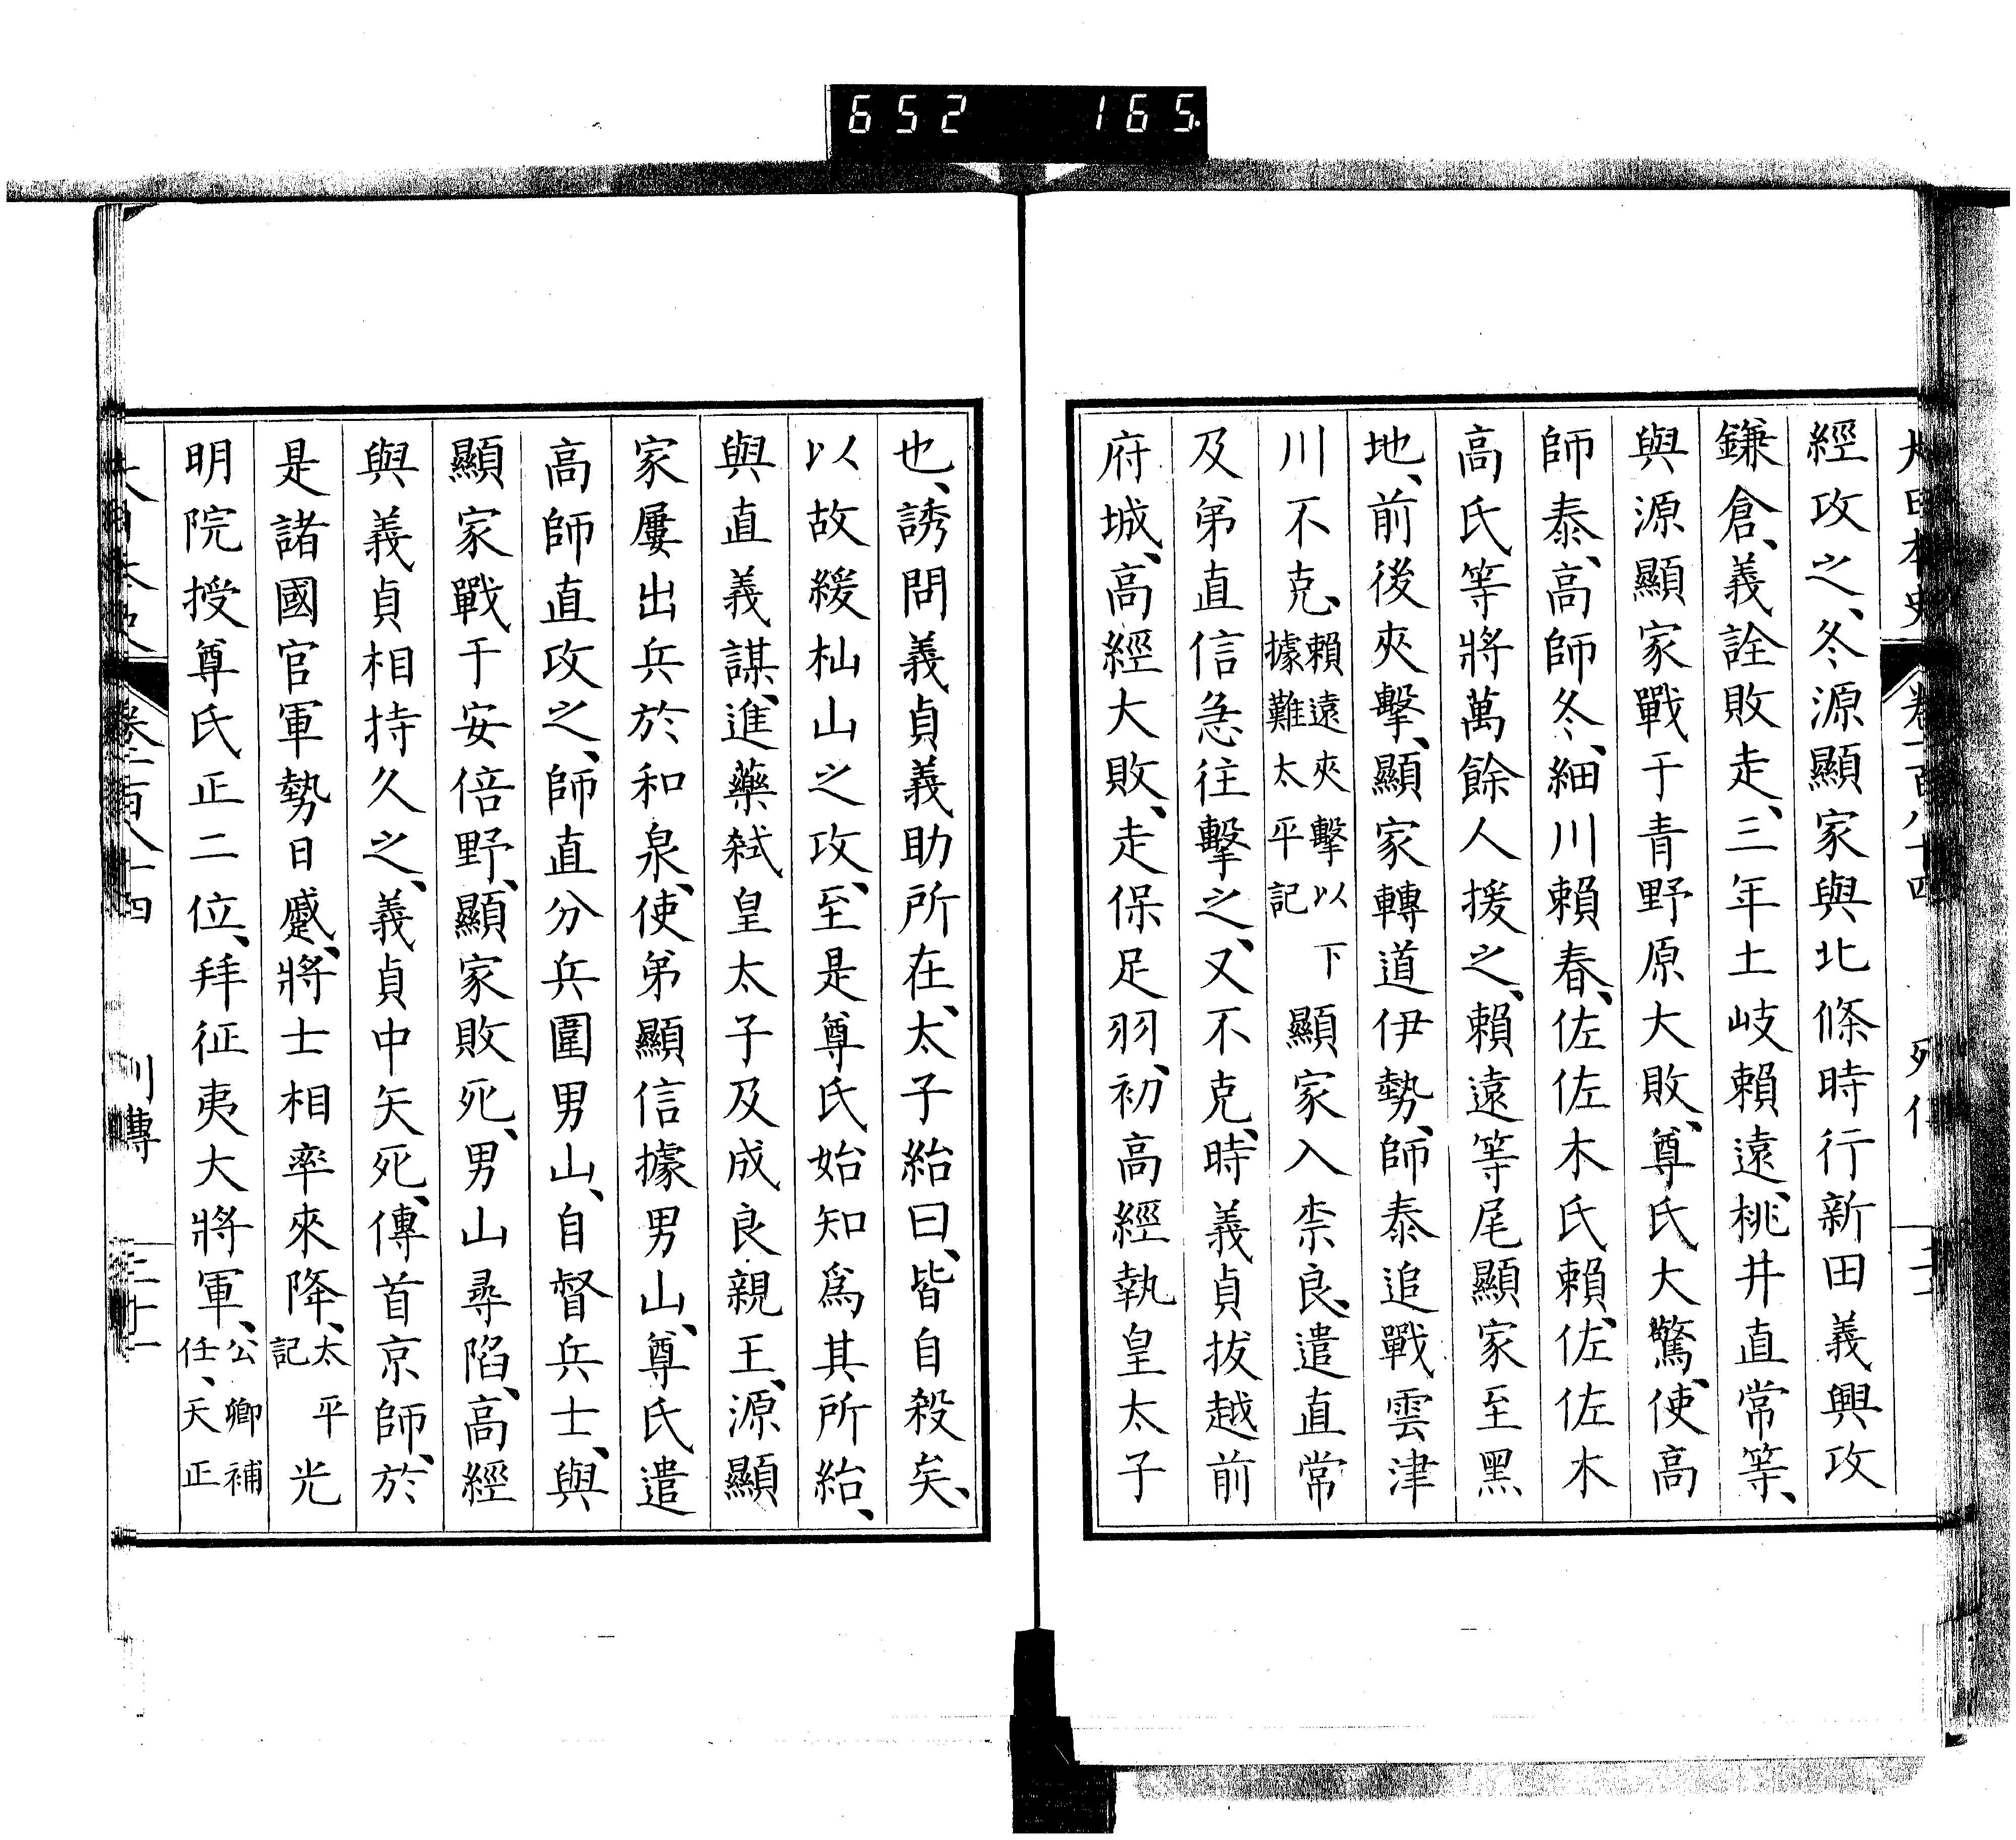 652 165.
大日本史 卷一百八十四 列傳
經攻之、冬源顯家與北條時行新田義興攻
鎌倉、義詮敗走、三年土岐賴遠、桃井直常等、
與源顯家戰于青野原大敗、尊氏大驚、使高
師泰、高師冬、細川賴春、佐佐木氏賴、佐佐木
高氏等將萬餘人援之、賴遠等尾顯家至黑
地、前後夾擊、顯家轉道伊勢、師泰追戰雲津
川不克、賴遠夾擊以下據難太平記顯家入柰良、遣直常
及弟直信急往擊之、又不克、時義貞拔越前
府城、高經大敗、走保足羽、初高經執皇太子
也、誘問義貞義助所在、太子紿曰、皆自殺矣、
以故緩杣山之攻、至是尊氏始知爲其所紿、
與直義謀、進藥弒皇太子及成良親王、源顯
家屢出兵於和泉、使弟顯信據男山、尊氏遣
高師直攻之、師直分兵圍男山、自督兵士、與
顯家戰于安倍野、顯家敗死、男山尋陷、高經
與義貞相持久之、義貞中矢死、傳首京師、於
是諸國官軍勢日蹙、將士相率來降、太平記光
明院授尊氏正二位、拜征夷大將軍、公卿補任、天正
大日本史 卷一百八十四 列傳